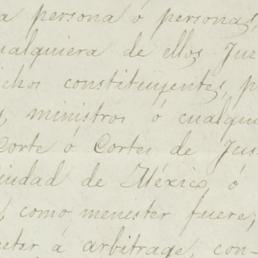 a persona ó personas,
ualquiera de ellos Juz
ichos constituyentes, p
s, ministros ó cualqui
Corte ó Cortes de Jus
Ciudad de México, ó
, como menester fuere,
eter á arbitrage, con-